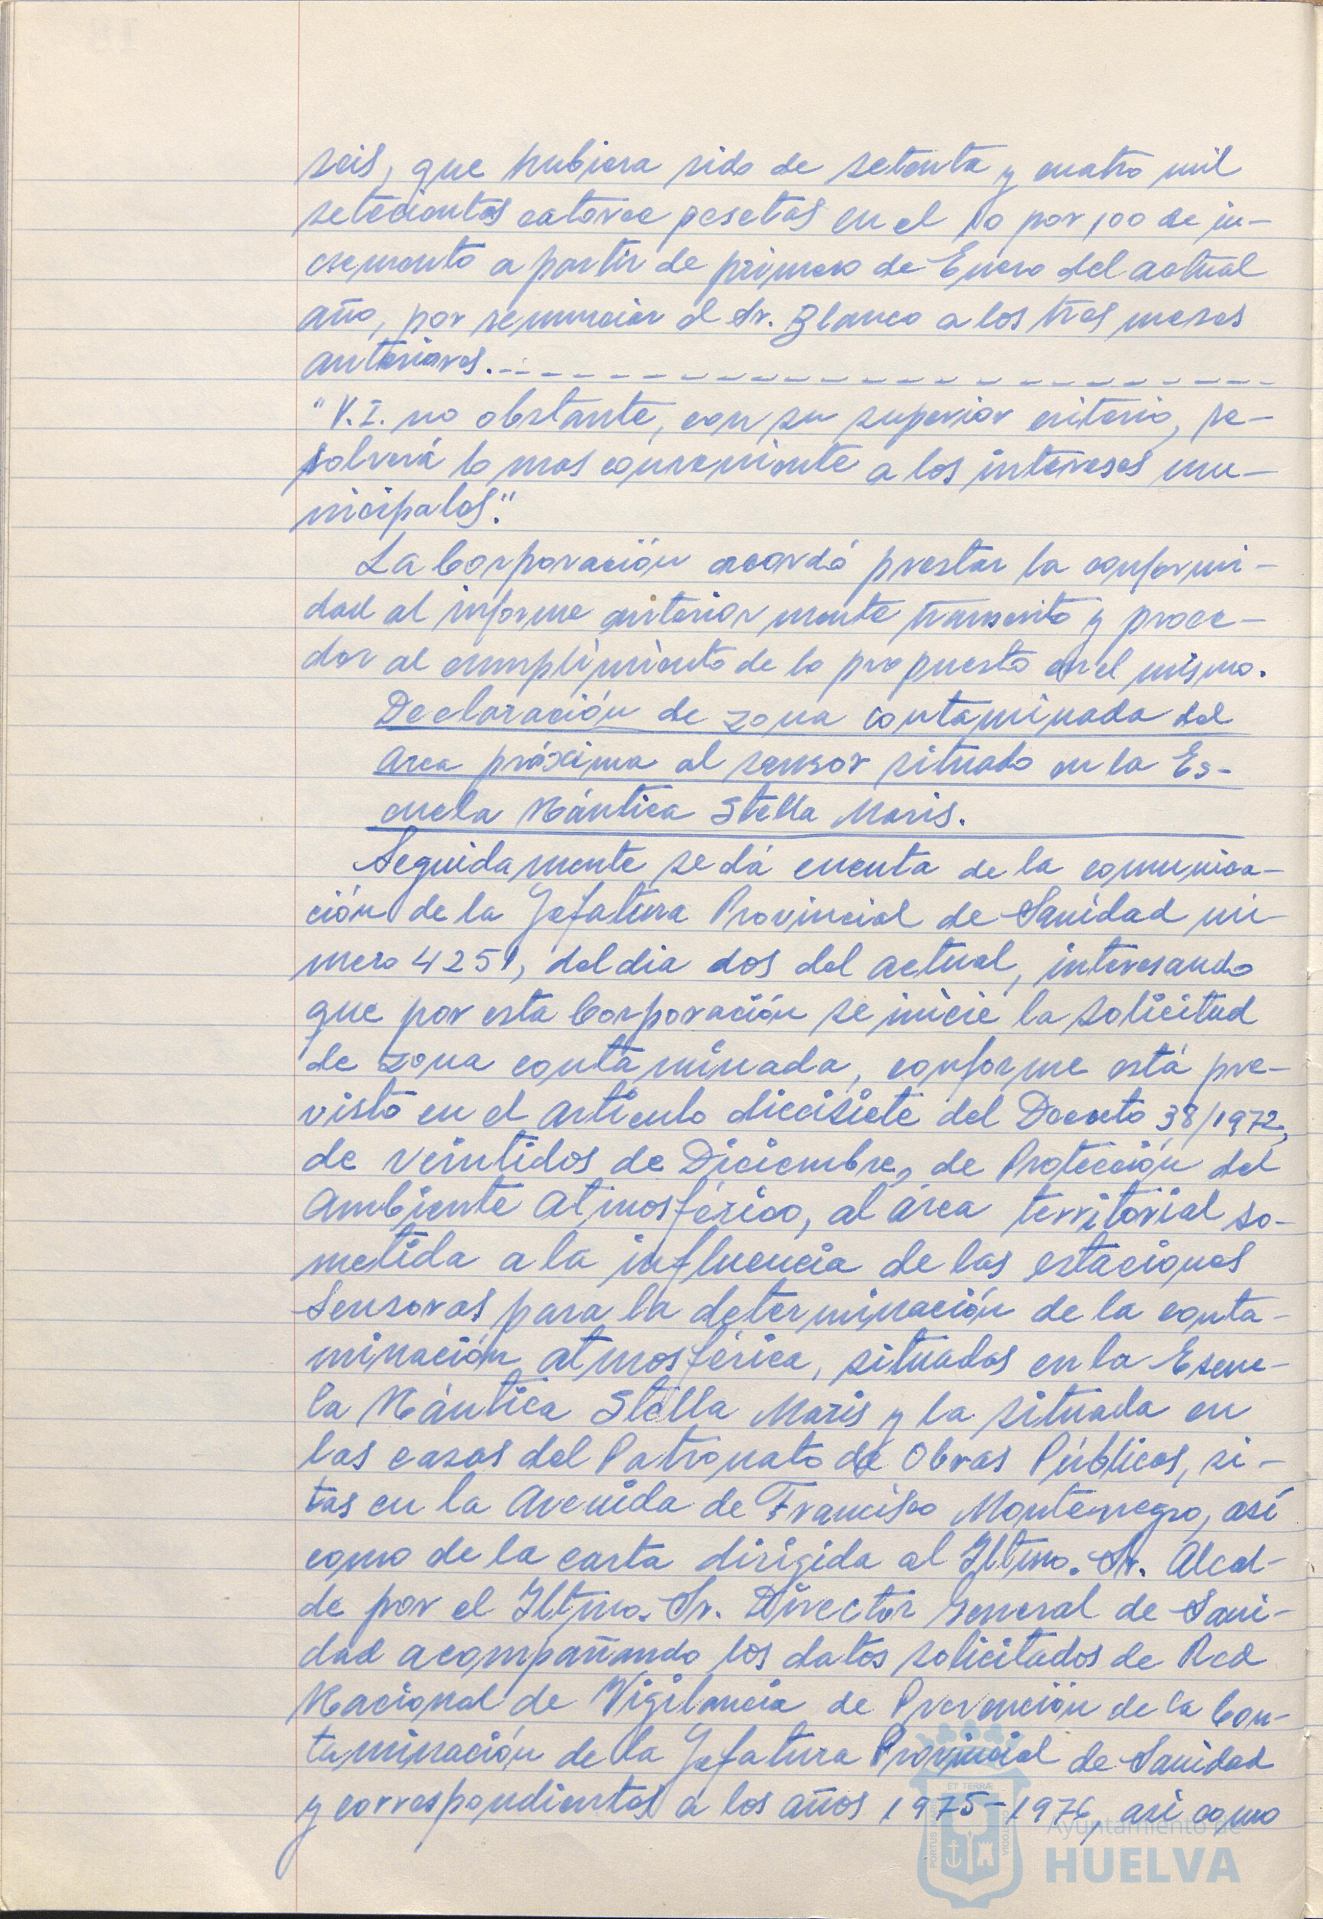 seis, que hubiera sido de setenta y cuatro mil
setecientos catorce pesetas en el 10 por 100 de in-
cremento a partir de primero de Enero del actual
año, por renunciar el Sr. Blanco a los tres meses
anteriores.-
"V.I. no obstante, con su superior criterio, re-
solverá lo mas conveniente a los intereses mu-
nicipales".
La Corporación acordó prestar la conformi-
dad al informe anteriormente transcrito y proce-
der al cumplimiento de lo propuesto en el mismo.
Declaración de zona contaminada del
area próxima al sensor situado en la Es-
cuela Náutica Stella Maris.
Seguidamente se dá cuenta de la comunica-
ción de la Jefatura Provincial de Sanidad nú-
mero 4251, del dia dos del actual, interesando
que por esta Corporación se inicie la solicitud
de zona contaminada, conforme está pre-
visto en el articulo diecisiete del Decreto 38/1972,
de veintidos de Diciembre, de Protección del
Ambiente Atmosférico, al área territorial so-
metida a la influencia de las estaciones
Sensoras para la determinación de la conta-
minación atmosférica, situadas en la Escue-
la Náutica Stella Maris y la situada en
las casas del Patronato de Obras Públicas, si-
tas en la Avenida de Francisco Montenegro, así
como de la carta dirigida al Iltmo. Sr. Alcal-
de por el Iltmo. Sr. Director General de Sani-
dad acompañando los datos solicitados de Red
Nacional de Vigilancia de Prevención de la Con-
taminación de la Jefatura Provincial de Sanidad
y correspondientes a los años 1975-1976, así como
Ayuntamiento de
HUELVA